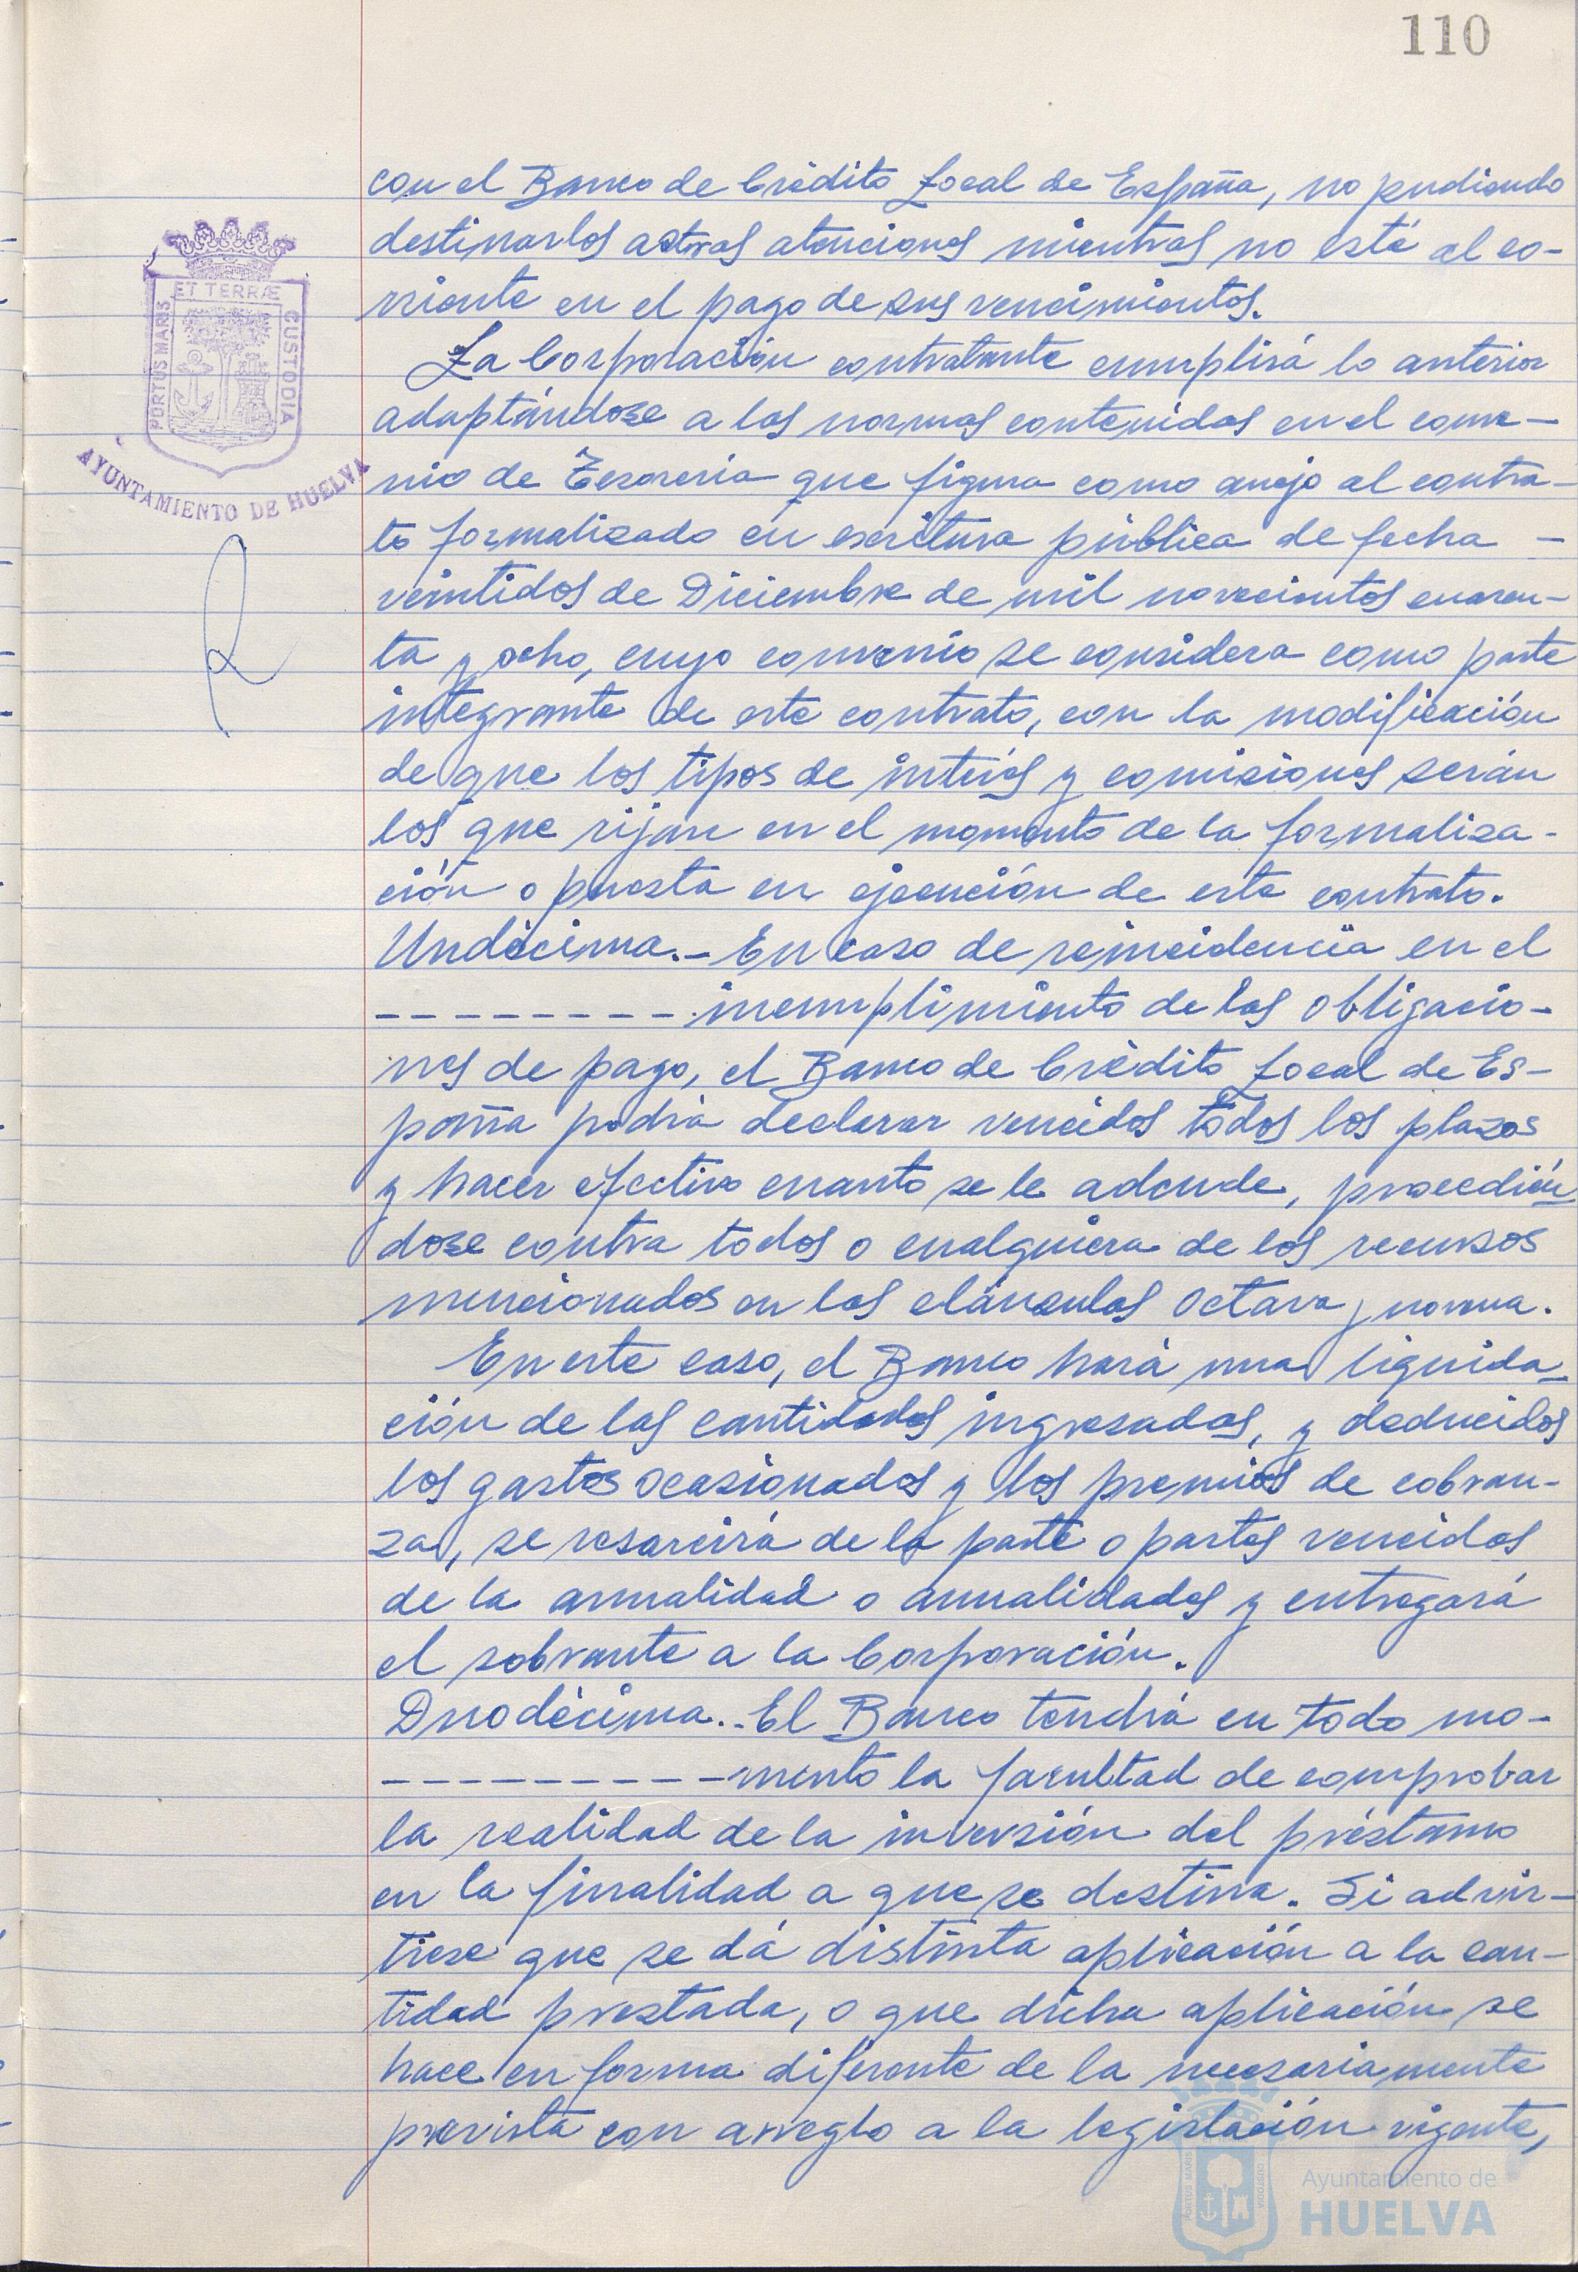 110
con el Banco de Crédito Local de España, no pudiendo
destinarlos a otras atenciones mientras no esté al co-
rriente en el pago de sus vencimientos.
La Corporación contratante cumplirá lo anterior
adaptándose a las normas contenidas en el conve-
nio de Tesoreria que figura como anejo al contra-
to formalizado en escritura pública de fecha -
veintidos de Diciembre de mil novecientos cuaren-
ta y ocho, cuyo convenio se considera como parte
integrante de este contrato, con la modificación
de que los tipos de interés y comisiones serán
los que rijan en el momento de la formaliza-
ción o puesta en ejecución de este contrato.
Undécima.- En caso de reincidencia en el
--------incumplimiento de las obligacio-
nes de pago, el Banco de Crédito Local de Es-
paña podrá declarar vencidos todos los plazos
y hacer efectivo cuanto se le adeude, procedién
dose contra todos o cualquiera de los recursos
mencionados en las cláusulas octava y novena.
En este caso, el Banco hará una liquida-
ción de las cantidades ingresadas, y deducidos
los gastos ocasionados y los premios de cobran-
za, se resarcirá de la parte o partes vencidas
de la anualidad o anualidades y entregará
el sobrante a la Corporación.
Duodécima.- El Banco tendrá en todo mo-
---------mento la facultad de comprobar
la realidad de la inversión del préstamo
en la finalidad a que se destina. Si advir-
tiese que se dá distinta aplicación a la can-
tidad prestada, o que dicha aplicación se
hace en forma diferente de la necesariamente
prevista con arreglo a la legislación vigente,
PORTUS MARIS
ET TERRÆ
CUSTODIA
AYUNTAMIENTO DE HUELVA
PORTUS MARIS
CUSTODIA
Ayuntamiento de
HUELVA